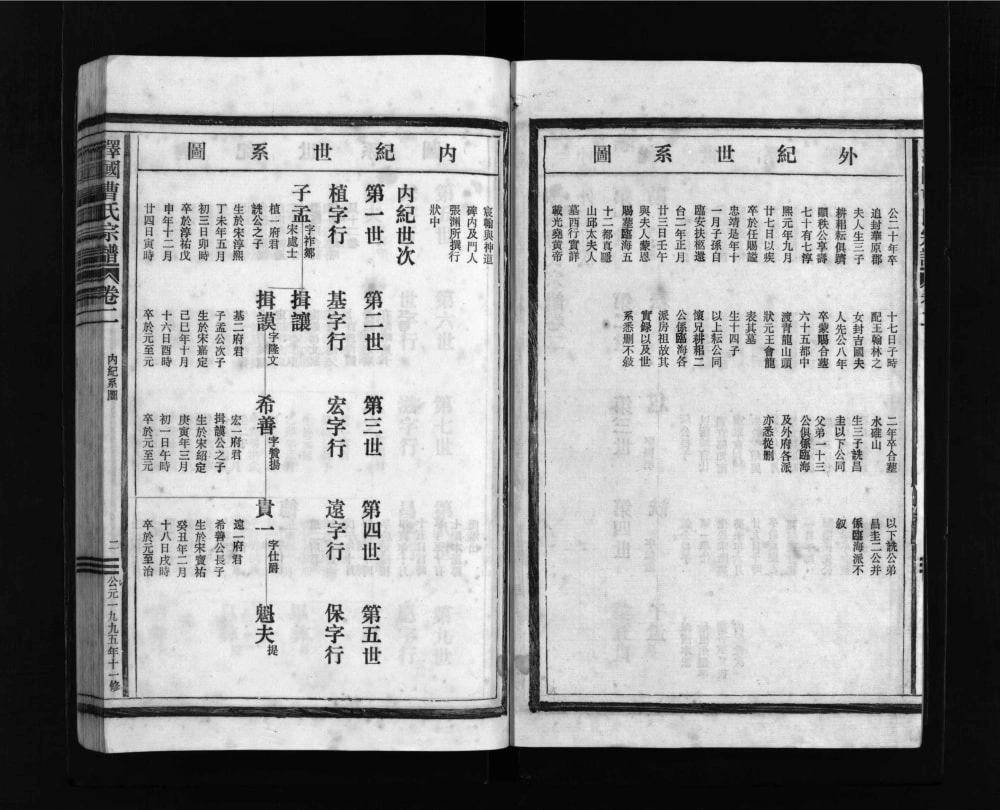 外紀世系圖
公二十年卒
追封華原郡
夫人生三子
耕耜耘俱躋
顯秩公享壽
七十有七淳
熙元年九月
廿七日以疾
卒於任賜諡
忠靖是年十
一月子孫自
臨安扶柩還
台二年正月
廿三日壬午
與夫人蒙恩
賜塟臨海五
十二都真隱
山邱太夫人
墓西行實詳
載光堯黃帝
十七日子時
配王翰林之
女封吉國夫
人先公八年
卒蒙賜合塟
六十五都中
渡青龍山頭
狀元王會龍
表其墓
生十四子
以上耘公同
懷兄耕耜二
公係臨海各
派房祖故其
實錄以及世
系悉刪不敍
二年卒合塟
水碓山
生三子詵昌
圭以下公同
父弟一十三
公俱係臨海
及外府各派
亦悉從刪
以下詵公弟
昌圭二公并
係臨海派不
叙
內紀世系圖
宸翰與神道
碑內及門人
張淵所撰行
狀中
內紀世次
第一世
第二世
第三世
第四世
第五世
植字行
基字行
宏字行
遠字行
保字行
子孟
字祚鄒
宋處士
植一府君
詵公之子
生於宋淳熙
丁未年五月
初三日卯時
卒於淳祐戊
申年十二月
廿四日寅時
揖讓
揖謨
字隆文
基二府君
子孟公次子
生於宋嘉定
己巳年十月
十六日酉時
卒於元至元
希善
字贊揚
宏一府君
揖謨公之子
生於宋紹定
庚寅年三月
初一日午時
卒於元至元
貴一
字仕爵
遠一府君
希善公長子
生於宋寶祐
癸丑年二月
十八日戌時
卒於元至治
魁夫
提
澤國曹氏宗譜
卷二
內紀系圖
二
公元一九九五年十一修